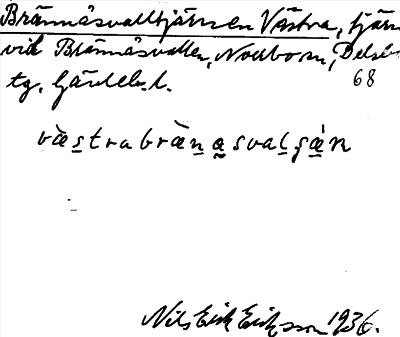 Brännåsvalltjärnen Västra, tjärn
vid Brännåsvallen, Norrborn, Delsbo
68
tg. Gävleb. l.
västrabränasvalsän
Nils Erik Eriksson 1936.